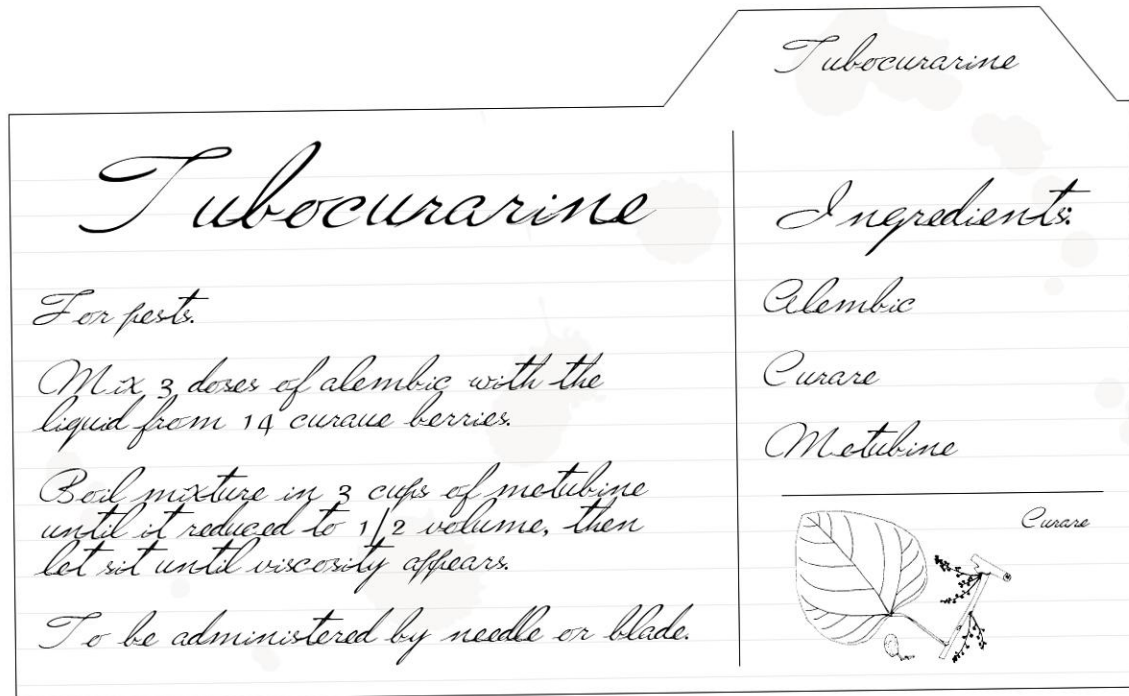 Tubocurarine
Tubocurarine
For pests.
Mix 3 doses of alembic with the
liquid from 14 curaue berries.
Boil mixture in 3 cups of metubine
until it reduced to 1/2 volume, then
let sit until viscosity appears.
To be administered by needle or blade.
Ingredients:
Alembic
Curare
Metubine
Curare